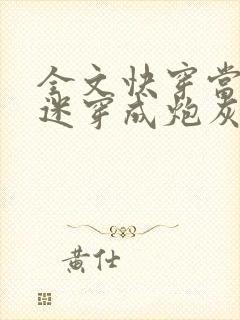 全文快穿当
迷穿成炮灰
黄仕